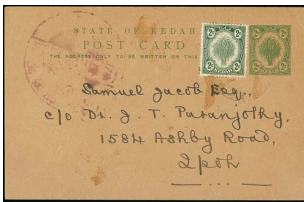 STATE OF KEDAH
POST CARD
THE ADDRESS ONLY TO BE WRITTEN ON THIS
Samuel Jacob Esq.,
c/o Dr. J. T. Paranjothy,
1584 Ashby Road,
Ipoh